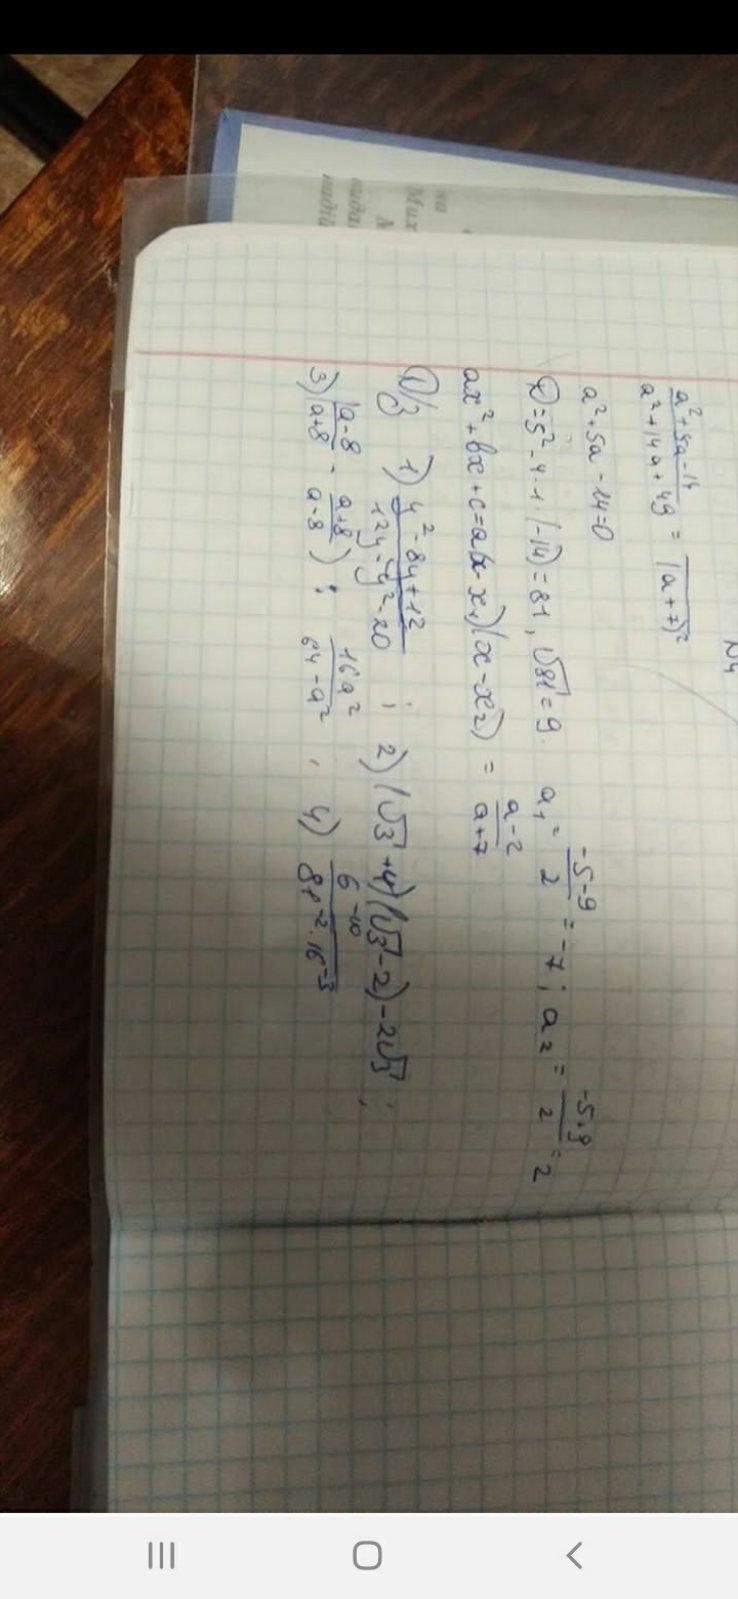 N4
a² + 5a - 14 / a² + 14a + 49 = / (a + 7)²
a² + 5a - 14 = 0
D = 5² - 4 · 1 · (-14) = 81, √81 = 9. a₁ = -5-9 / 2 = -7; a₂ = -5+9 / 2 = 2
ax² + bx + c = a(x - x₁)(x - x₂) = a-2 / a+7
D/з 1) y² - 8y + 12 / 12y - y² - 20 ; 2) (√3 + 4)(√3 - 2) - 2√3 ;
3) (a-8 / a+8 - a+8 / a-8) : 16a² / 64-a² , 4) 6⁻¹⁰ / 81⁻² · 16⁻³